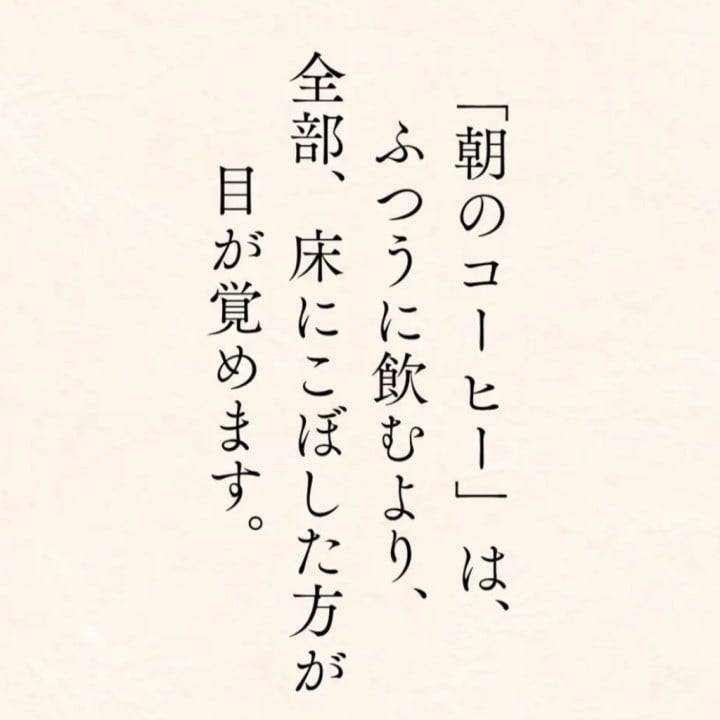 「朝のコーヒー」は、
ふつうに飲むより、
全部、床にこぼした方が
目が覚めます。